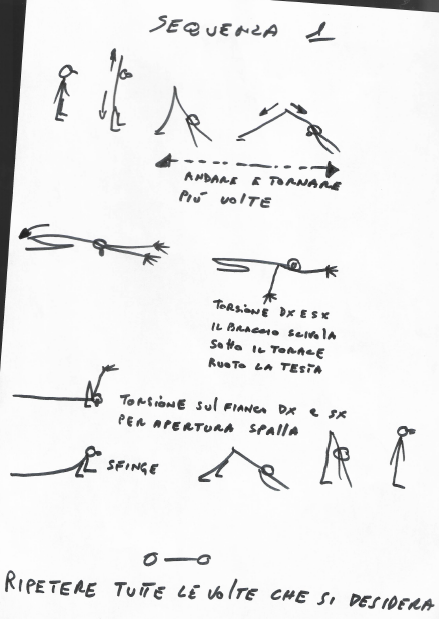 SEQUENZA 1
ANDARE E TORNARE
PIÙ VOLTE
TORSIONE DX E SX
IL BRACCIO SCIVOLA
SOTTO IL TORACE
RUOTO LA TESTA
TORSIONE SUL FIANCO DX E SX
PER APERTURA SPALLA
SFINGE
RIPETERE TUTTE LE VOLTE CHE SI DESIDERA